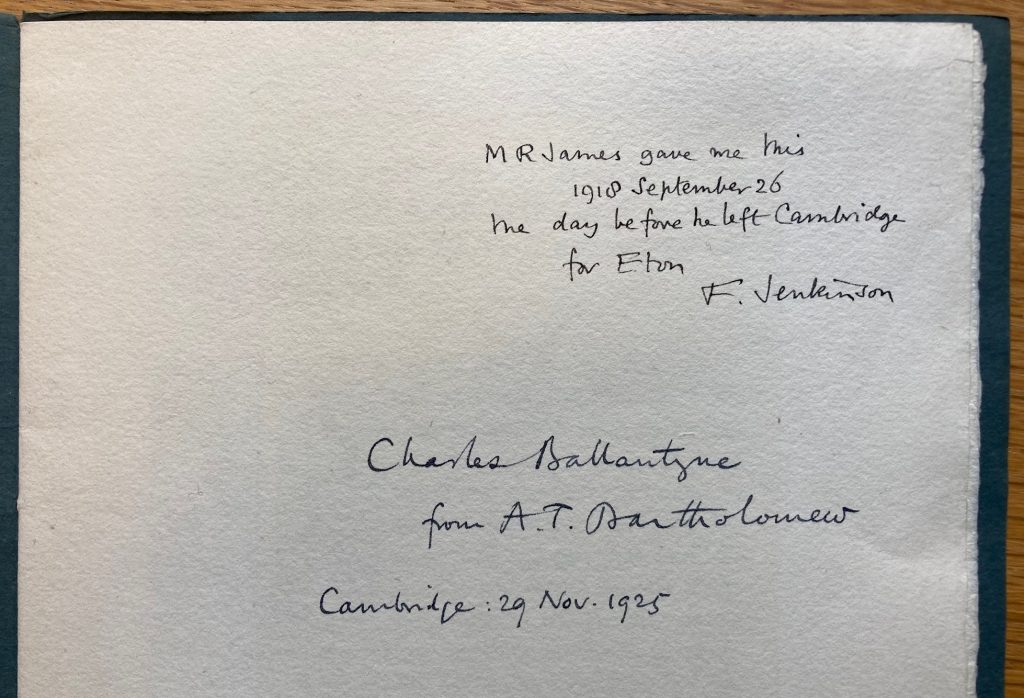 M R James gave me this
1918 September 26
the day before he left Cambridge
for Eton
F. Jenkinson
Charles Ballantyne
from A.T. Bartholomew
Cambridge: 29 Nov. 1925